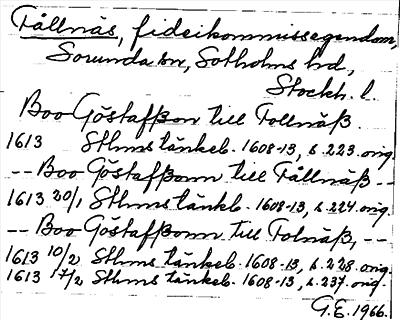 Fållnäs, fideikommissegendom,
Sorunda sn, Sotholms hd,
Stockh. l.
Boo Göstafßon till Follnäß
1613 Sthms tänkeb. 1608-13, s. 223. orig.
-- Boo Göstafßonn till Fållnäß --
1613 20/1 Sthms tänkb. 1608-13, s. 224. orig.
-- Boo Göstafßonn till Folnäß, --
1613 10/2 Sthms tänkeb. 1608-13, s. 228. orig.
1613 17/2 Sthms tänkeb. 1608-13, s. 237. orig.
G.E. 1966.